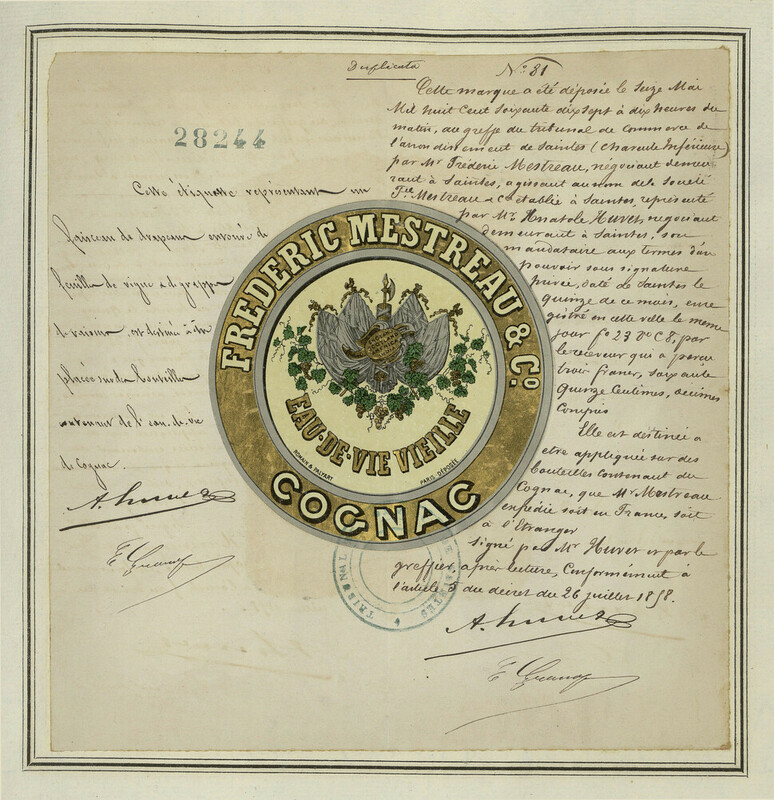 Duplicata
N° 81
28244
Cette étiquette représentant un
faisceau de drapeaux entouré de
feuille de vigne & de grappe
de raisin, est destiné à être
placée sur des bouteilles
contenant de l'eau-de-vie
de Cognac.
A. Huvet
Cette marque a été déposée le Seize Mai
Mil huit Cent Soixante dix Sept à dix heures du
matin, au greffe du tribunal de Commerce de
l'arrondissement de Saintes (Charente Inférieure)
par Mr Frédéric Mestreau, négociant demeu
rant à Saintes, agissant au nom de la Société
Fic Mestreau & Co établie à Saintes, représenté
par Mr Anatole Huvet, négociant
demeurant à Saintes, son
mandataire aux termes d'un
pouvoir sous signature
privée, daté de Saintes le
quinze de ce mois, enre
gistré en cette ville le même
jour fo 27 Vo C 8, par
le receveur qui a perçu
trois francs, soixante
quinze Centimes, décimes
Compris
Elle est destinée à
être appliquée sur des
bouteilles contenant du
Cognac, que Mr Mestreau
expédie soit en France, soit
à l'Etranger
Signé par Mr Huvet et par le
greffier, après lecture, Conformément à
l'article 5 du décret du 26 juillet 1858.
A. Huvet
FREDERIC MESTREAU & Co.
EAU-DE-VIE VIEILLE
ROMAIN & PALYART
PARIS DÉPOSÉE
COGNAC
TRIBUNAL